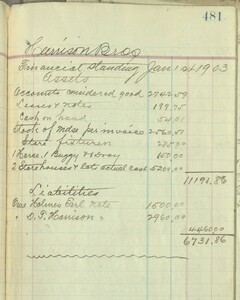 481
Harrison Bros
Financial standing Jan 1st 1903
Assets
Accounts considered good 2742.59
Leases & notes 189.75
Cash on hand
Stock of Mdse per invoice 2560.50
Store fixtures
1 Horse, 1 Buggy & Dray 150.00
2 Storehouses & lots actual cost 5200.00
11191.86
Liabilities
Due Holmes Earl Note 1500.00
" D.P. Harrison " 2960.00
4460.00
6731.86